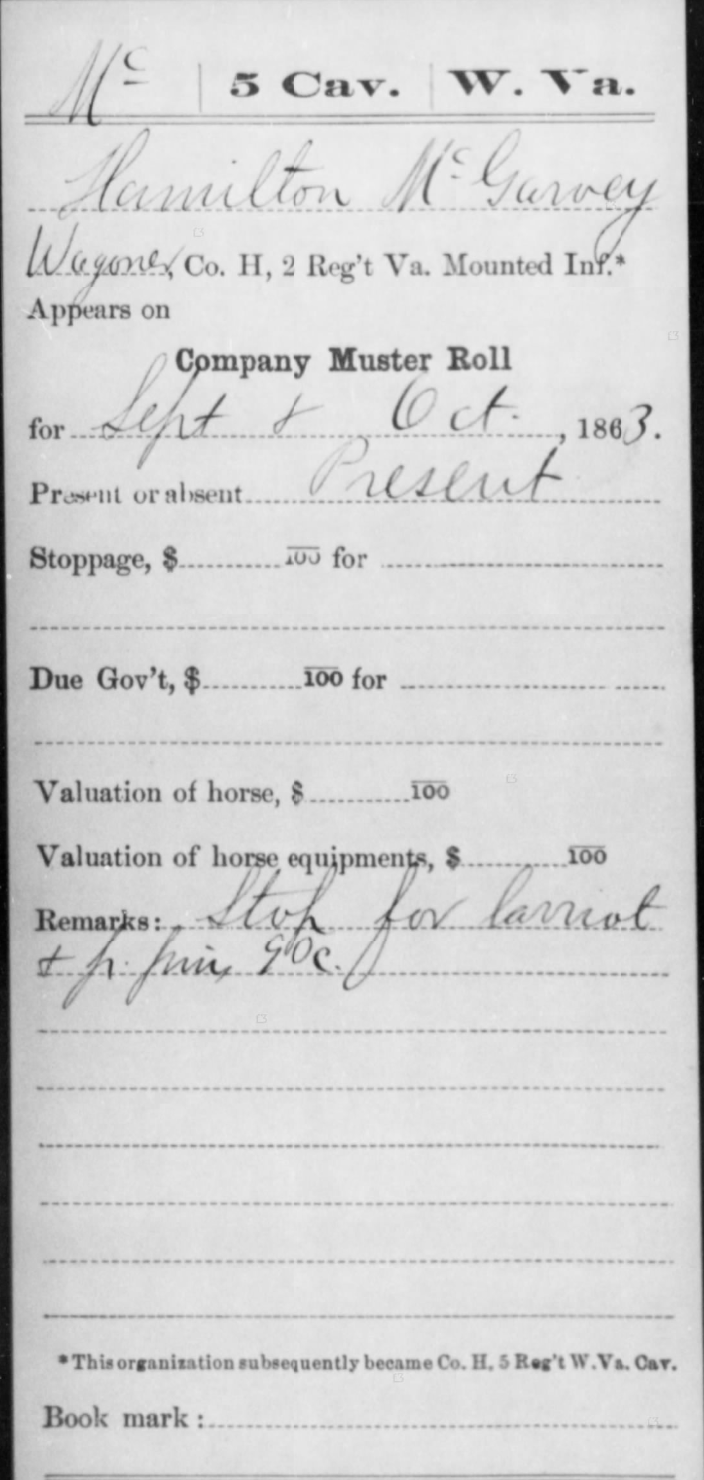 Mc | 5 Cav. | W. Va.
Hamilton McGarvey
Wagoner, Co. H, 2 Reg't Va. Mounted Inf.*
Appears on
Company Muster Roll
for Sept & Oct. , 1863.
Present or absent Present
Stoppage, $ 100 for
Due Gov't, $ 100 for
Valuation of horse, $ 100
Valuation of horse equipments, $ 100
Remarks: Stop for larriot
& p. pin, 90c.
*This organization subsequently became Co. H, 5 Reg't W. Va. Cav.
Book mark :